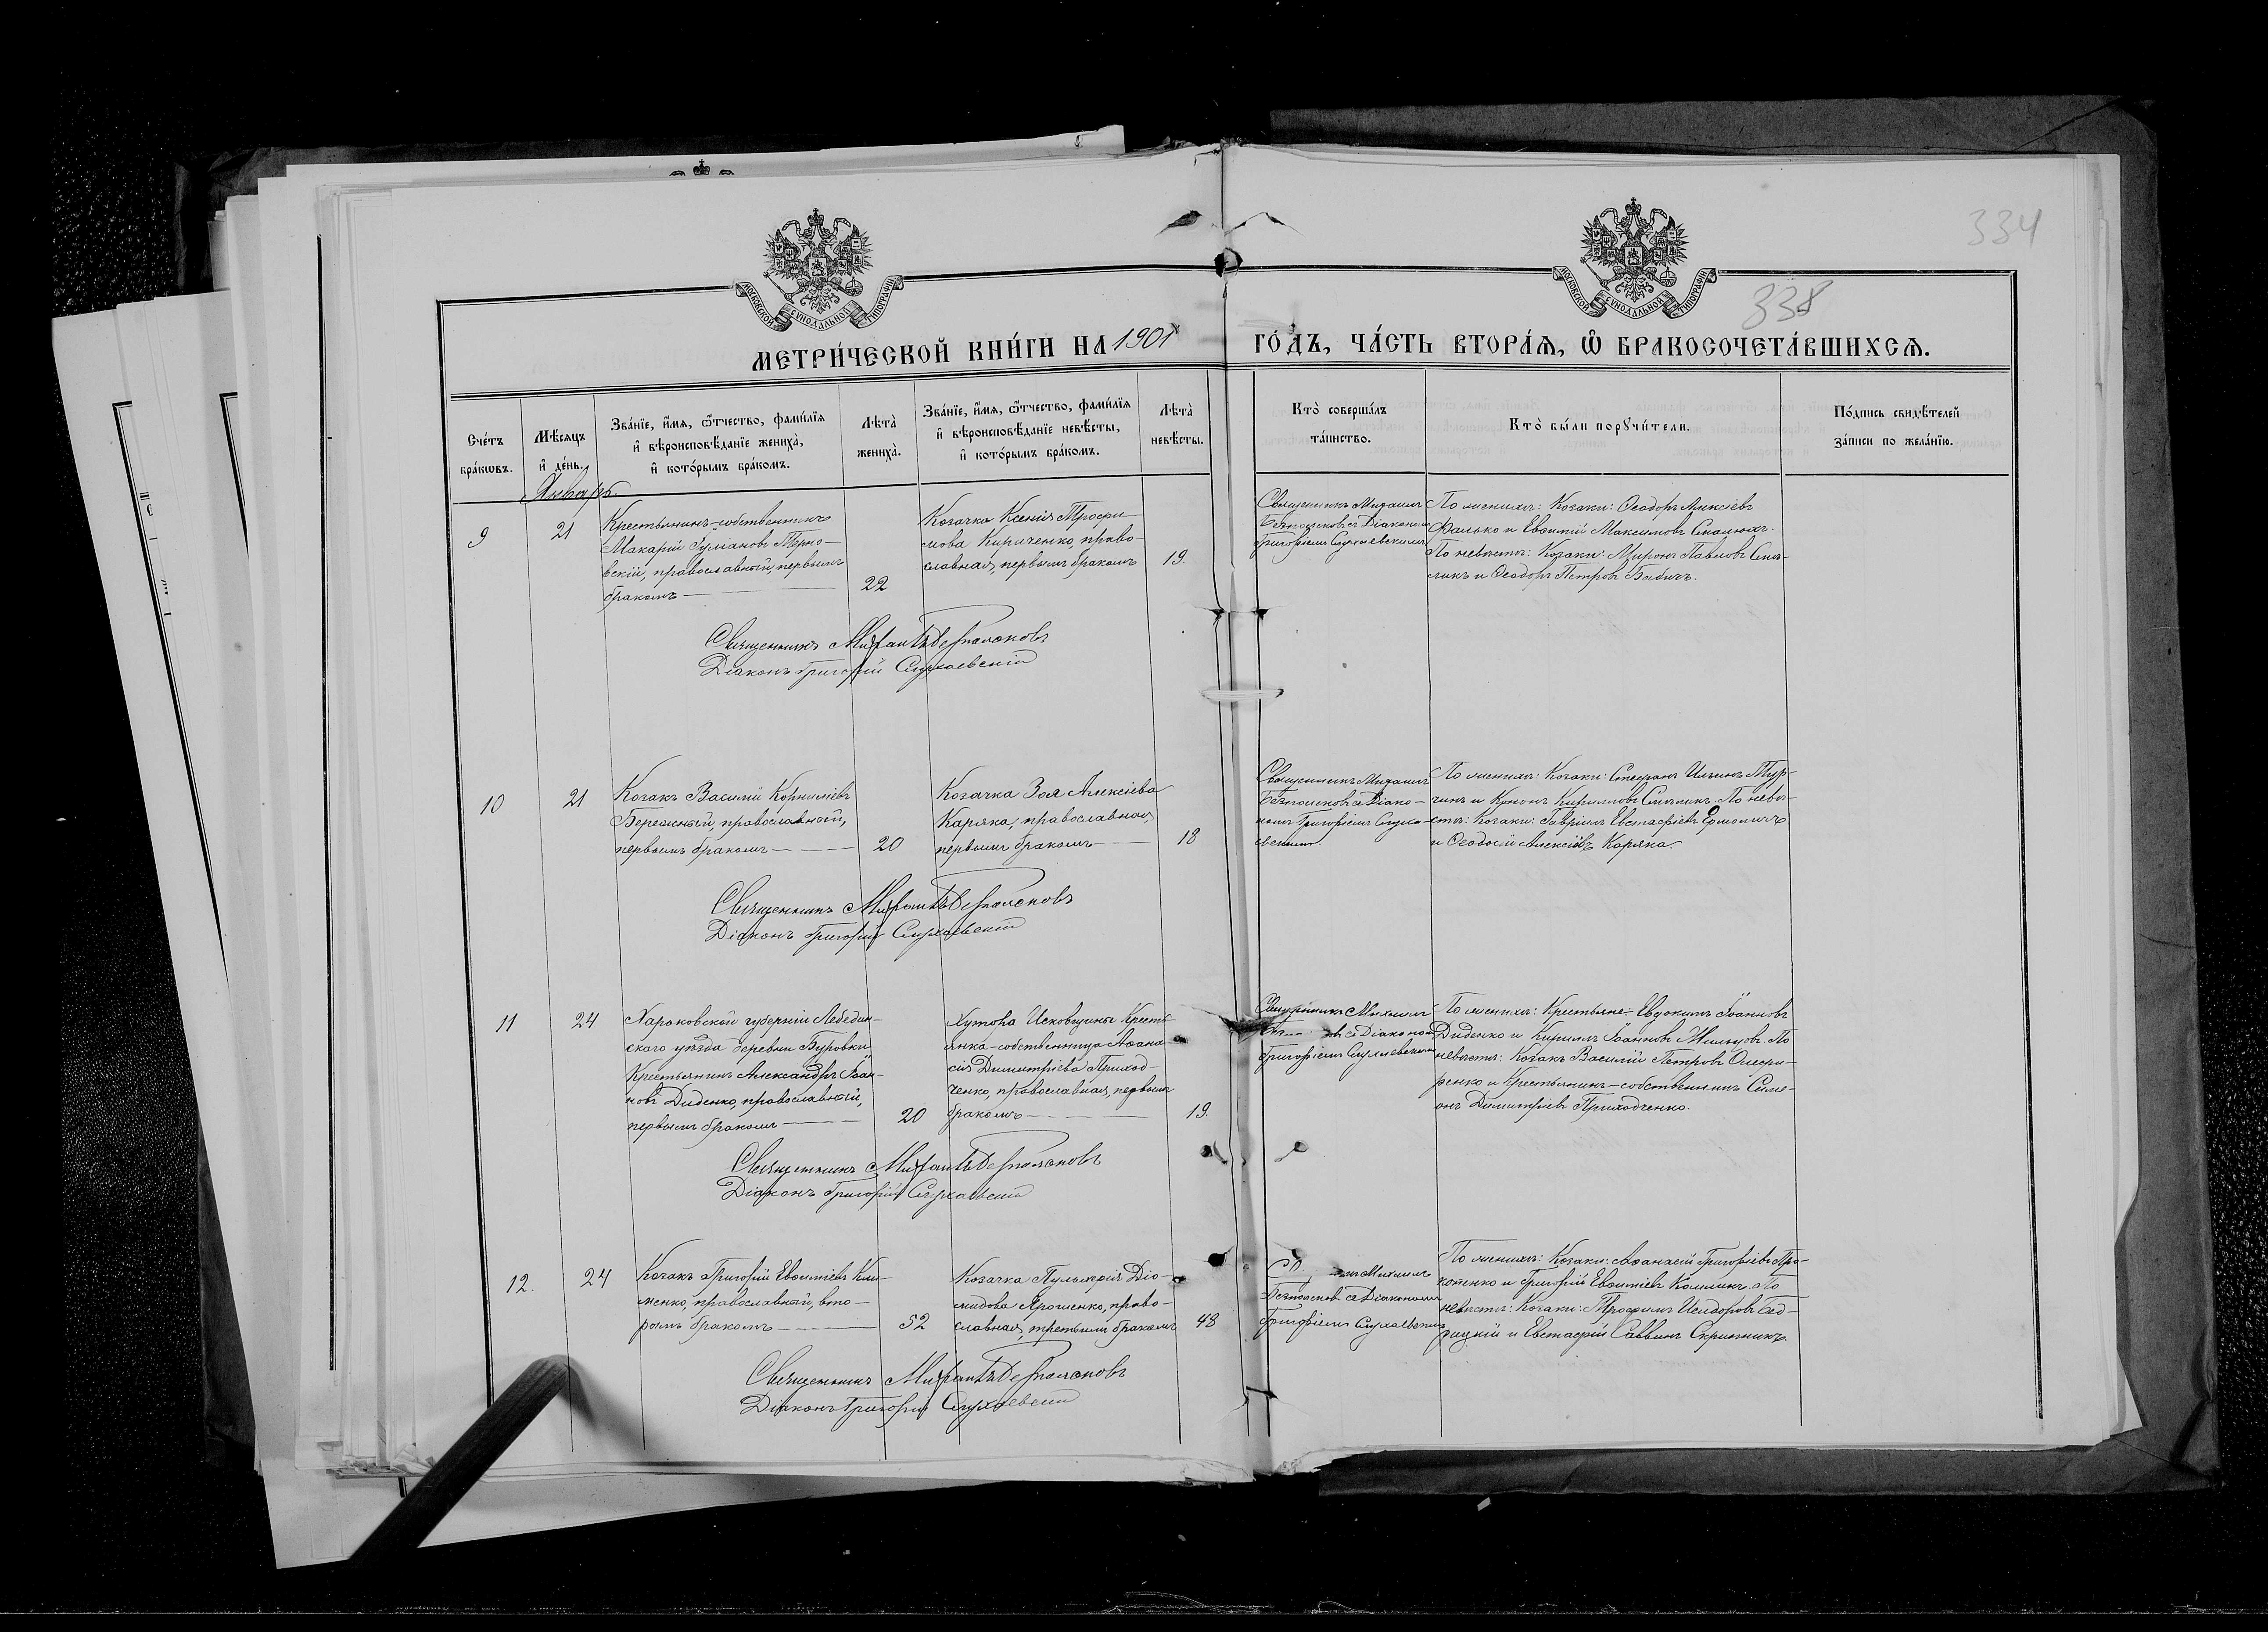 334
338
МОСКОВСКОЙ СУНОДАЛЬНОЙ ТИПОГРАФІИ
МОСКОВСКОЙ СУНОДАЛЬНОЙ ТИПОГРАФІИ
МЕТРИ́ЧЕСКОЙ КНИ́ГИ НА 1901 ГО́ДЪ, ЧА́СТЬ ВТОРА́Я, Ѡ БРАКОСОЧЕТА́ВШИХСЯ.
Сче́тъ
бра́кωвъ.
Мѣ́сяцъ
и҆ де́нь.
Зва́нїе, и҆́мѧ, ѻ҆́тчество, фами́лїѧ
и҆ вѣроисповѣ́данїе жениха̀,
и҆ кото́рымъ бра́комъ.
Лѣта̀
жениха̀.
Зва́нїе, и҆́мѧ, ѻ҆́тчество, фами́лїѧ
и҆ вѣроисповѣ́данїе невѣ́сты,
и҆ кото́рымъ бра́комъ.
Лѣта̀
невѣ́сты.
Кто̀ соверша́лъ
та́инство.
Кто̀ бы́ли порꙋчи́тели.
По́дпись свидѣ́телей
за́писи по жела́нїю.
Январь.
9
21
Крестьянинъ-собственникъ
Макарій Іуліановъ Терно-
вскій, православный, первымъ
бракомъ
22
Козачка Ксенія Трофи-
мова Кириченко, право-
славная, первымъ бракомъ
19.
Священникъ Михаилъ
Безпалсковъ съ Діакономъ
Григоріемъ Слухаевскимъ
По женихѣ: Козаки: Ѳеодоръ Алексіевъ
Фалько и Евѳимій Максимовъ
По невѣстѣ: Козаки: Миронъ Павловъ Смы-
сликъ и Ѳеодоръ Петровъ Бабичъ.
Священникъ Михаилъ
Діаконъ Григорій Слухаевскій
10
21
Козакъ Василій Корниліевъ
Бережный, православный,
первымъ бракомъ
20
Козачка Зоя Алексіева
Каряка, православная,
первымъ бракомъ
18
Священникъ Михаилъ
съ Діако-
номъ Григоріемъ Слуха-
евскимъ.
По женихѣ: Козаки: Стефанъ Ильинъ Тур-
чинъ и Кононъ Кирилловъ По невѣ-
стѣ: Козаки: Гавріилъ Евстафіевъ Ермоличъ
и Ѳеодосій Алексіевъ Каряка.
Священникъ Михаилъ
Діаконъ Григорій Слухаевскій
11
24
Харьковской губерніи Лебедин-
скаго уѣзда деревни
Крестьянинъ Александръ Іоан-
новъ Диденко, православный,
первымъ бракомъ
20
Хутора Исковщины Кресть-
янка-собственница Аѳана-
сія Димитріева Приход-
ченко, православная, первымъ
бракомъ
19.
Священникъ Михаилъ
съ Діакономъ
Григоріемъ Слухаевскимъ
По женихѣ: Крестьяне: Евдокимъ Іоанновъ
Диденко и Кириллъ Іоанновъ По
невѣстѣ: Козакъ Василій Петровъ Олефи-
ренко и Крестьянинъ-собственникъ Симе-
онъ Димитріевъ Приходченко.
Священникъ Михаилъ
Діаконъ Григорій Слухаевскій
12.
24
Козакъ Григорій Евѳиміевъ Кли-
менко, православный, вто-
рымъ бракомъ
52
Козачка Пульхерія Діо-
мидова Ярошенко, право-
славная, третьимъ бракомъ
48
Михаилъ
съ Діакономъ
Григоріемъ Слухаевскимъ
По женихѣ: Козаки: Аѳанасій Григоріевъ Про-
копенко и Григорій Евѳиміевъ По
невѣстѣ: Козаки: Трофимъ Исидоровъ
и Евстафій Саввинъ Скрипникъ.
Священникъ Михаилъ
Діаконъ Григорій Слухаевскій